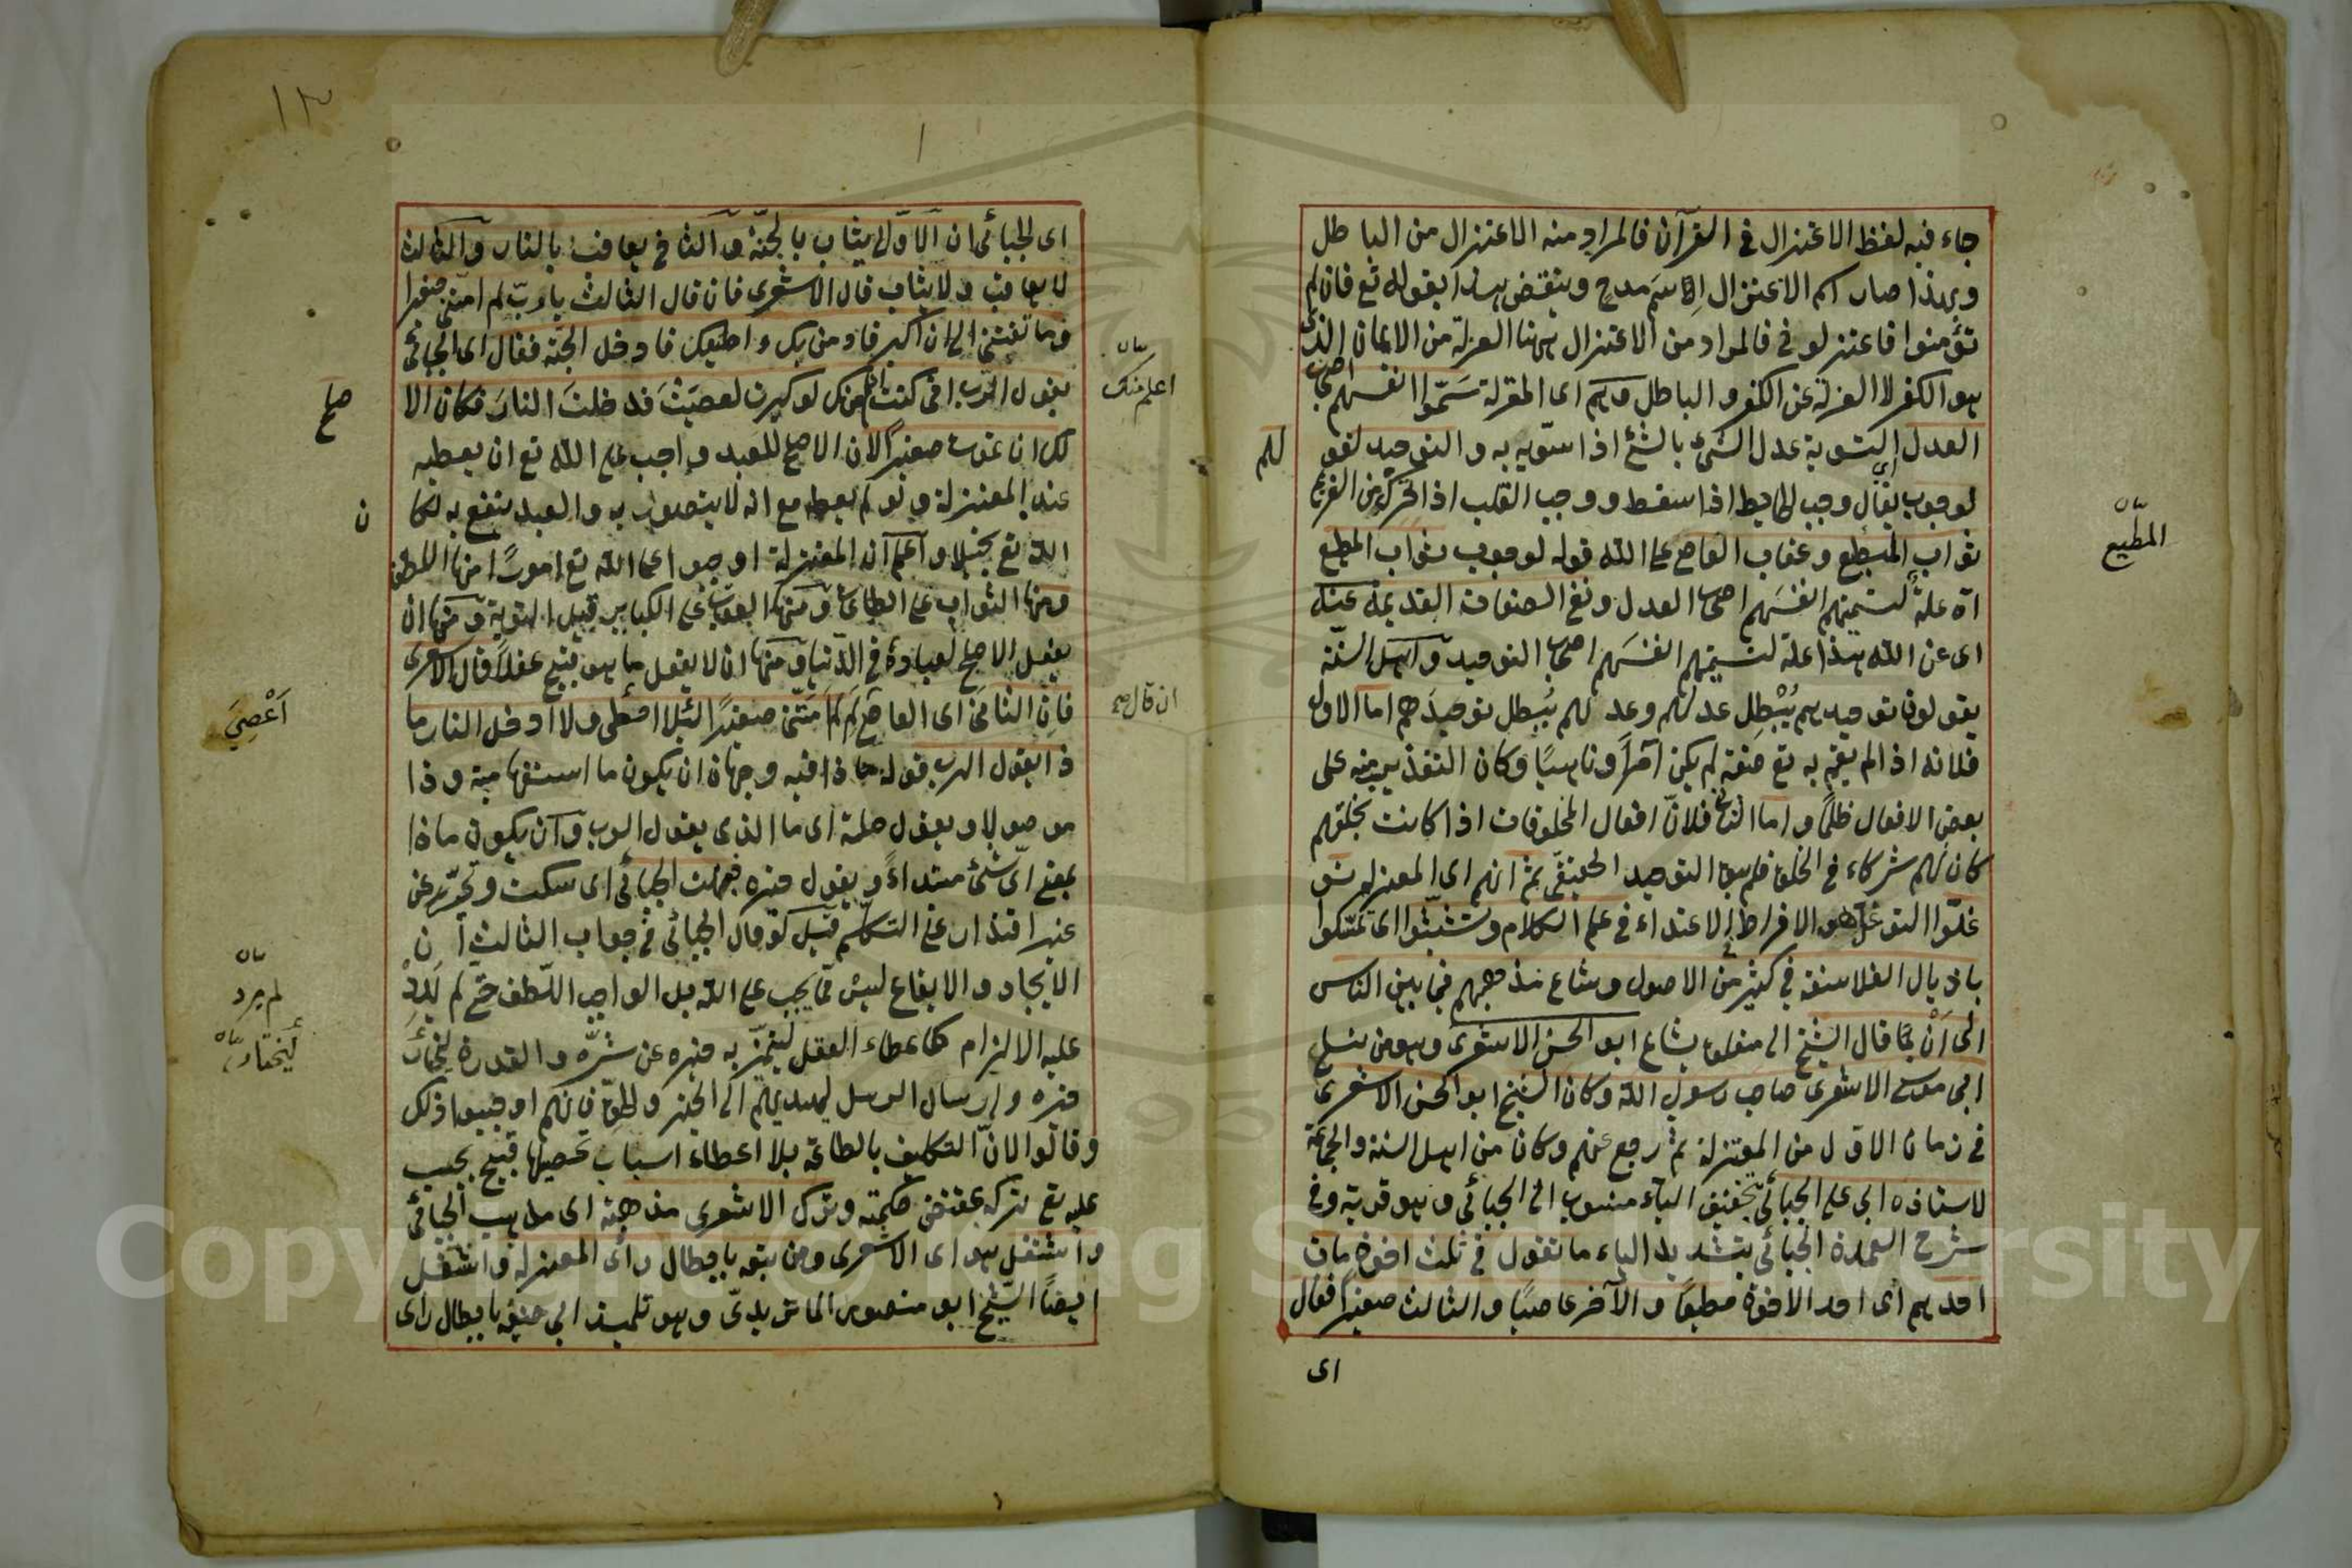 جاء فيه لفظ الاعتزال في القرآن فالمراد منه الاعتزال من الباطل
وبهذا صار اسم الاعتزال اسم مدح وينتقض هذا بقوله تع فان لم
تؤمنوا فاعتزلوني فالمراد من الاعتزال ههنا العزلة من الايمان الذى
هو الكفر لا العزلة عن الكفر والباطل وهم اى المعتزلة سمّوا انفسهم اصحاب
العدل التسوية عدل الشئ بالشئ اذا سوّيه به والتوحيد لقو
لهم
لوجوب يقال وجب الحايط اذا سقط ووجب القلب اذا تحرك من الفزع
ثواب المطيع وعقاب العاصى على الله قوله لوجوب ثواب المطيع
المطيع
آه علة لتسميتهم انفسهم اصحاب العدل ونفى الصفات القديمة عنه
اى عن الله هذا علة لتسميتهم انفسهم اصحاب التوحيد واهل السنة
يقولون توحيدهم يُبْطِل عدلهم وعدلهم يُبطل توحيدهم اما الاول
فلانه اذا لم يقم به تع صفة لم يكن آمرًا وناهيًا وكان التعذيب منه على
بعض الافعال ظلمًا واما الثانى فلانّ افعال المخلوقات اذا كانت بخلقهم
كان لهم شركاء فى الخلق فلم يبق التوحيد الحقيقى ثم انهم اى المعتزلة تو
غلّوا التوغل هو الافراط الاعتداء فى علم الكلام وتشبّثوا اى تمسّكوا
باذيال الفلاسفة فى كثير من الاصول وشاع مذهبهم فيما بين الناس
الى اَنْ قال الشيخ ابو الحسن الاشعرى وهو من نسل
ابى موسى الاشعرى صاحب رسول الله وكان الشيخ ابو الحسن الاشعرى
فى زمان الاول من المعتزلة ثم رجع عنهم وكان من اهل السنة والجماعة
لاستاذه ابى على الجبائى بتخفيف الباء منسوب الى الجبائى وهو قرية وفى
شرح العمدة الجبائى بتشديد الباء ما تقول فى ثلث اخوة مات
احدهم اى احد الاخوة مطيعًا والآخر عاصيًا والثالث صغيرًا فقال
اى
١٣
اى الجبائى ان الاوّل يثاب بالجنة والثانى يعاقب بالنار والثالث
لا يعاقب ولا يثاب قال الاشعرى فان قال الثالث يا ربّ لم امتّنى صغيرا
وما تقيتنى الى ان اكبر فاومن بك واطيعك فادخل الجنة فقال اى الجبائى
يقول الرب انى كنت اعلم منك لو كبرت لعصيت فدخلت النار فكان الا
اعلم منك
صلح
لك ان تموت صغيرًا لان الاصلح للعبد واجب على الله تع ان يعطيه
عند المعتزلة ولو لم يعطه مع انه لا يتضرر به والعبد ينتفع به لكا
ن
الله تع بخيلا واعلم ان المعتزلة اوجبوا على الله تع امورًا منها اللطف
ومنها الثواب على الطاعة ومنها العقاب على الكباير قبل التوبة ومنها ان
يفعل الاصلح لعباده فى الدنيا ومنها ان لا يفعل ما هو قبيح عقلا قال الاشعرى
ان قال صح
فان الثانى اى العاصى لِمَ لَمْ تمتنى صغيرًا لئلا اعصى ولا ادخل النار ما
أَعْصِيَ
ذا يقول الرب قوله ما ذا فيه وجهان ان يكون ما استفهامية وذا
موصولا ويقول صلة اى ما الذى يقول الرب وان يكون ماذا
بمعنى اىّ شئ مبتداءً ويقول خبره فبهت الجبائى اى سكت وتحيّر من
غير اقتدار على التكلم قيل لو قال الجبائى فى جواب الثالث ان
الايجاد والابقاع ليس مما يجب على الله بل الواجب اللّطف حتى لم يَرِدْ
لم يرد
عليه الالزام كاعطاء العقل ليتميّز به خيره عن شرّه والقدرة ليختار
ليختار
خيره وارسال الرسل ليهديهم الى الخير والحق فانهم اوجبوا ذلك
وقالوا لانّ التكليف بالطاعة بلا اعطاء اسباب تحصيلها قبيح يجب
عليه تع تركه بمقتضى حكمته وترك الاشعرى مذهبه اى مذهب الجبائى
واشتغل هو اى الاشعرى ومن تبعه بابطال رأى المعتزلة واشتغل
ايضًا الشيخ ابو منصور الماتريدىّ وهو تلميذ ابى حنيفة بابطال راى
Copyright © King Saud University
1957